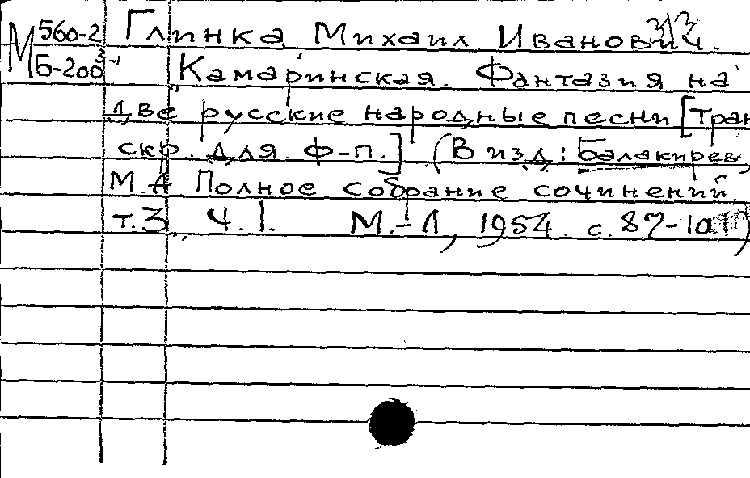 М 560-2
Б-200³
313
Глинка Михаил Иванович.
Камаринская. Фантазия на
две русские народные песни [тран
скр. для ф-п.] (В изд: Балакирев
М А Полное собрание сочинений
т.3, ч.1. М.-Л, 1954. с. 87-